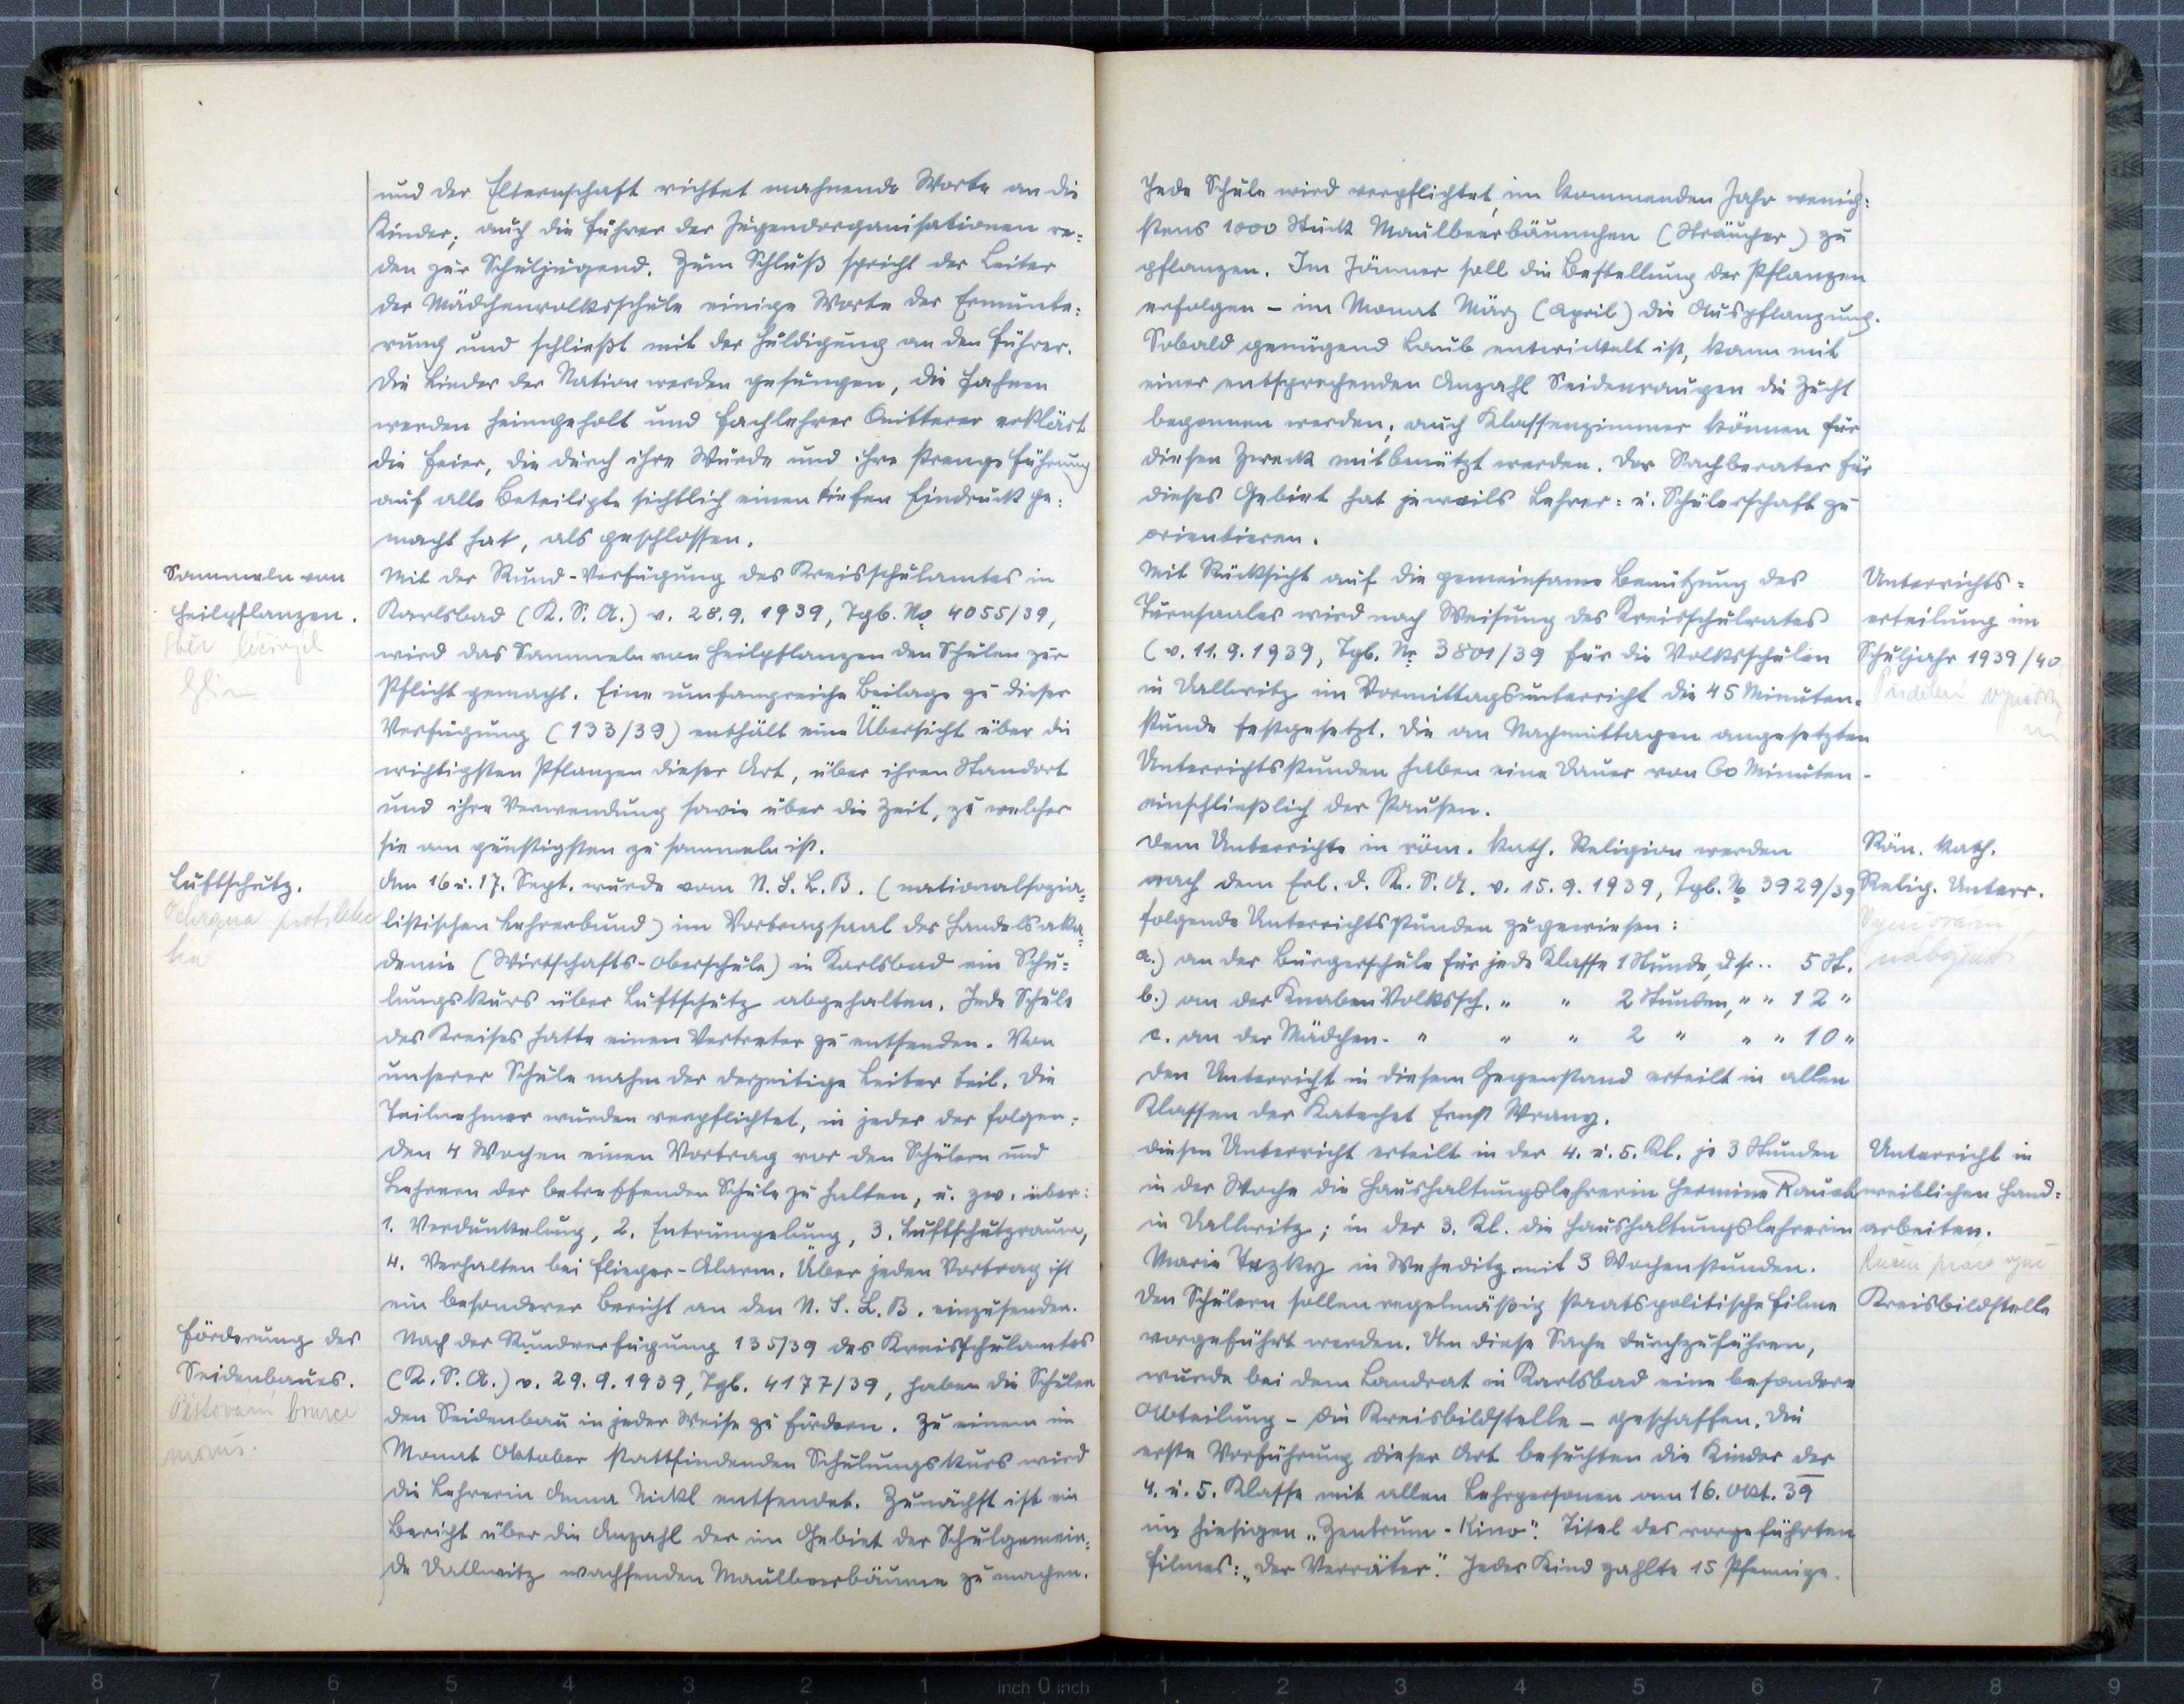 und der Elternschaft richtet mahnende Worte an die
Kinder; auch die Führer der Jugendorganisationen re-
den zur Schuljugend. Zum Schluß spricht der Leiter
der Mädchenvolksschule einige Worte der Ermunte-
rung und schließt mit der Huldigung an den Führer.
Die Lieder der Nation werden gesungen, die Fahnen
werden heimgeholt und Fachlehrer Quitterer erklärt
die Feier, die durch ihre Würde und ihre strenge Führung
auf alle Beteiligte sichtlich einen tiefen Eindruck ge-
macht hat, als geschlossen.
Sammeln von
Heilpflanzen.
Sběr léčivých
Mit der Rund-Verfügung des Kreisschulamtes in
Karlsbad (K. S. A.) v. 28.9.1939, Tgb. No 4055/39,
wird das Sammeln von Heilpflanzen den Schulen zur
Pflicht gemacht. Eine umfangreiche Beilage zu dieser
Verfügung (133/39) enthält eine Übersicht über die
wichtigsten Pflanzen dieser Art, über ihren Standort
und ihre Verwendung sowie über die Zeit, zu welcher
sie am günstigsten zu sammeln ist.
Luftschutz.
Ochrana protilete
cká
Am 16 u. 17. Sept. wurde vom N. S. L. B. (nationalsozia-
listischen Lehrerbund) im Vortragsaal der Handelsaka-
demie (Wirtschafts-Oberschule) in Karlsbad ein Schu-
lungskurs über Luftschutz abgehalten. Jede Schule
des Kreises hatte einen Vertreter zu entsenden. Von
unserer Schule nahm der derzeitige Leiter teil. Die
Teilnehmer wurden verpflichtet, in jeder der folgen-
den 4 Wochen einen Vortrag vor den Schülern und
Lehrern der betreffenden Schule zu halten, u. zw. über:
1. Verdunkelung, 2. Entrümpelung, 3. Luftschutzraum,
4. Verhalten bei Flieger-Alarm. Über jeden Vortrag ist
ein besonderer Bericht an den N. S. L. B. einzusenden.
Förderung des
Seidenbaues.
Pěstování bource
morus.
Nach der Rundverfügung 135/39 des Kreisschulamtes
(K. S. A.) v. 29.9.1939, Tgb. 4177/39, haben die Schulen
den Seidenbau in jeder Weise zu fördern. Zu einem im
Monat Oktober stattfindenden Schulungskurs wird
die Lehrerin Anna Nickl entsendet. Zunächst ist ein
Bericht über die Anzahl der im Gebiet der Schulgemein-
de Dallwitz wachsenden Maulbeerbäume zu machen.
Jede Schule wird verpflichtet, im kommenden Jahr wenig-
stens 1000 Stück Maulbeerbäumchen (Sträucher) zu
pflanzen. Im Jänner soll die Bestellung der Pflanzen
erfolgen - im Monat März (April) die Auspflanzung.
Sobald genügend Laub entwickelt ist, kann mit
einer entsprechenden Anzahl Seidenraupen die Zucht
begonnen werden; auch Klassenzimmer können für
diesen Zweck mitbenützt werden. Der Sachberater für
dieses Gebiet hat jeweils Lehrer- u. Schülerschaft zu
orientieren.
Mit Rücksicht auf die gemeinsame Benützung des
Turnsaales wird nach Weisung des Kreisschulrates
(v. 11.9.1939, Tgb. Nr 3801/39 für die Volksschulen
in Dallwitz im Vormittagsunterricht die 45 Minuten-
stunde festgesetzt. Die an Nachmittagen angesetzten
Unterrichtsstunden haben eine Dauer von 60 Minuten -
einschließlich der Pausen.
Unterrichts-
erteilung im
Schuljahr 1939/40
Dem Unterrichte in röm. kath. Religion werden
nach dem Erl. d. K. S. A. v. 15.9.1939, Tgb. No 3929/39
folgende Unterrichtsstunden zugewiesen:
a.) an der Bürgerschule für jede Klasse 1 Stunde, d.s. .. 5 St.
b.) an der Knaben Volkssch. " " 2 Stunden, " " 12 "
c. an der Mädchen- " " " 2 " " " 10 "
Den Unterricht in diesem Gegenstand erteilt in allen
Klassen der Katechet Ernst Wrany.
Röm. kath.
Relig. Unterr.
Vyučování
náboženst
Diesen Unterricht erteilt in der 4. u. 5. Kl. je 3 Stunden
in der Woche die Haushaltungslehrerin Hermine Rauch
in Dallwitz; in der 3. Kl. die Haushaltungslehrerin
Marie Tazky in Weheditz mit 3 Wochenstunden.
Unterricht in
weiblichen Hand-
arbeiten.
Ruční práce
Den Schülern sollen regelmäßig staatspolitische Filme
vorgeführt werden. Um diese Sache durchzuführen,
wurde bei dem Landrat in Karlsbad eine besondere
Abteilung - die Kreisbildstelle - geschaffen. Die
erste Vorführung dieser Art besuchten die Kinder der
4. u. 5. Klasse mit allen Lehrpersonen am 16. Okt. 39
im hiesigen „Zentrum-Kino". Titel des vorgeführten
Filmes: „Der Verräter." Jedes Kind zahlte 15 Pfennige.
Kreisbildstelle
8 7 6 5 4 3 2 1 inch 0 inch 1 2 3 4 5 6 7 8 9